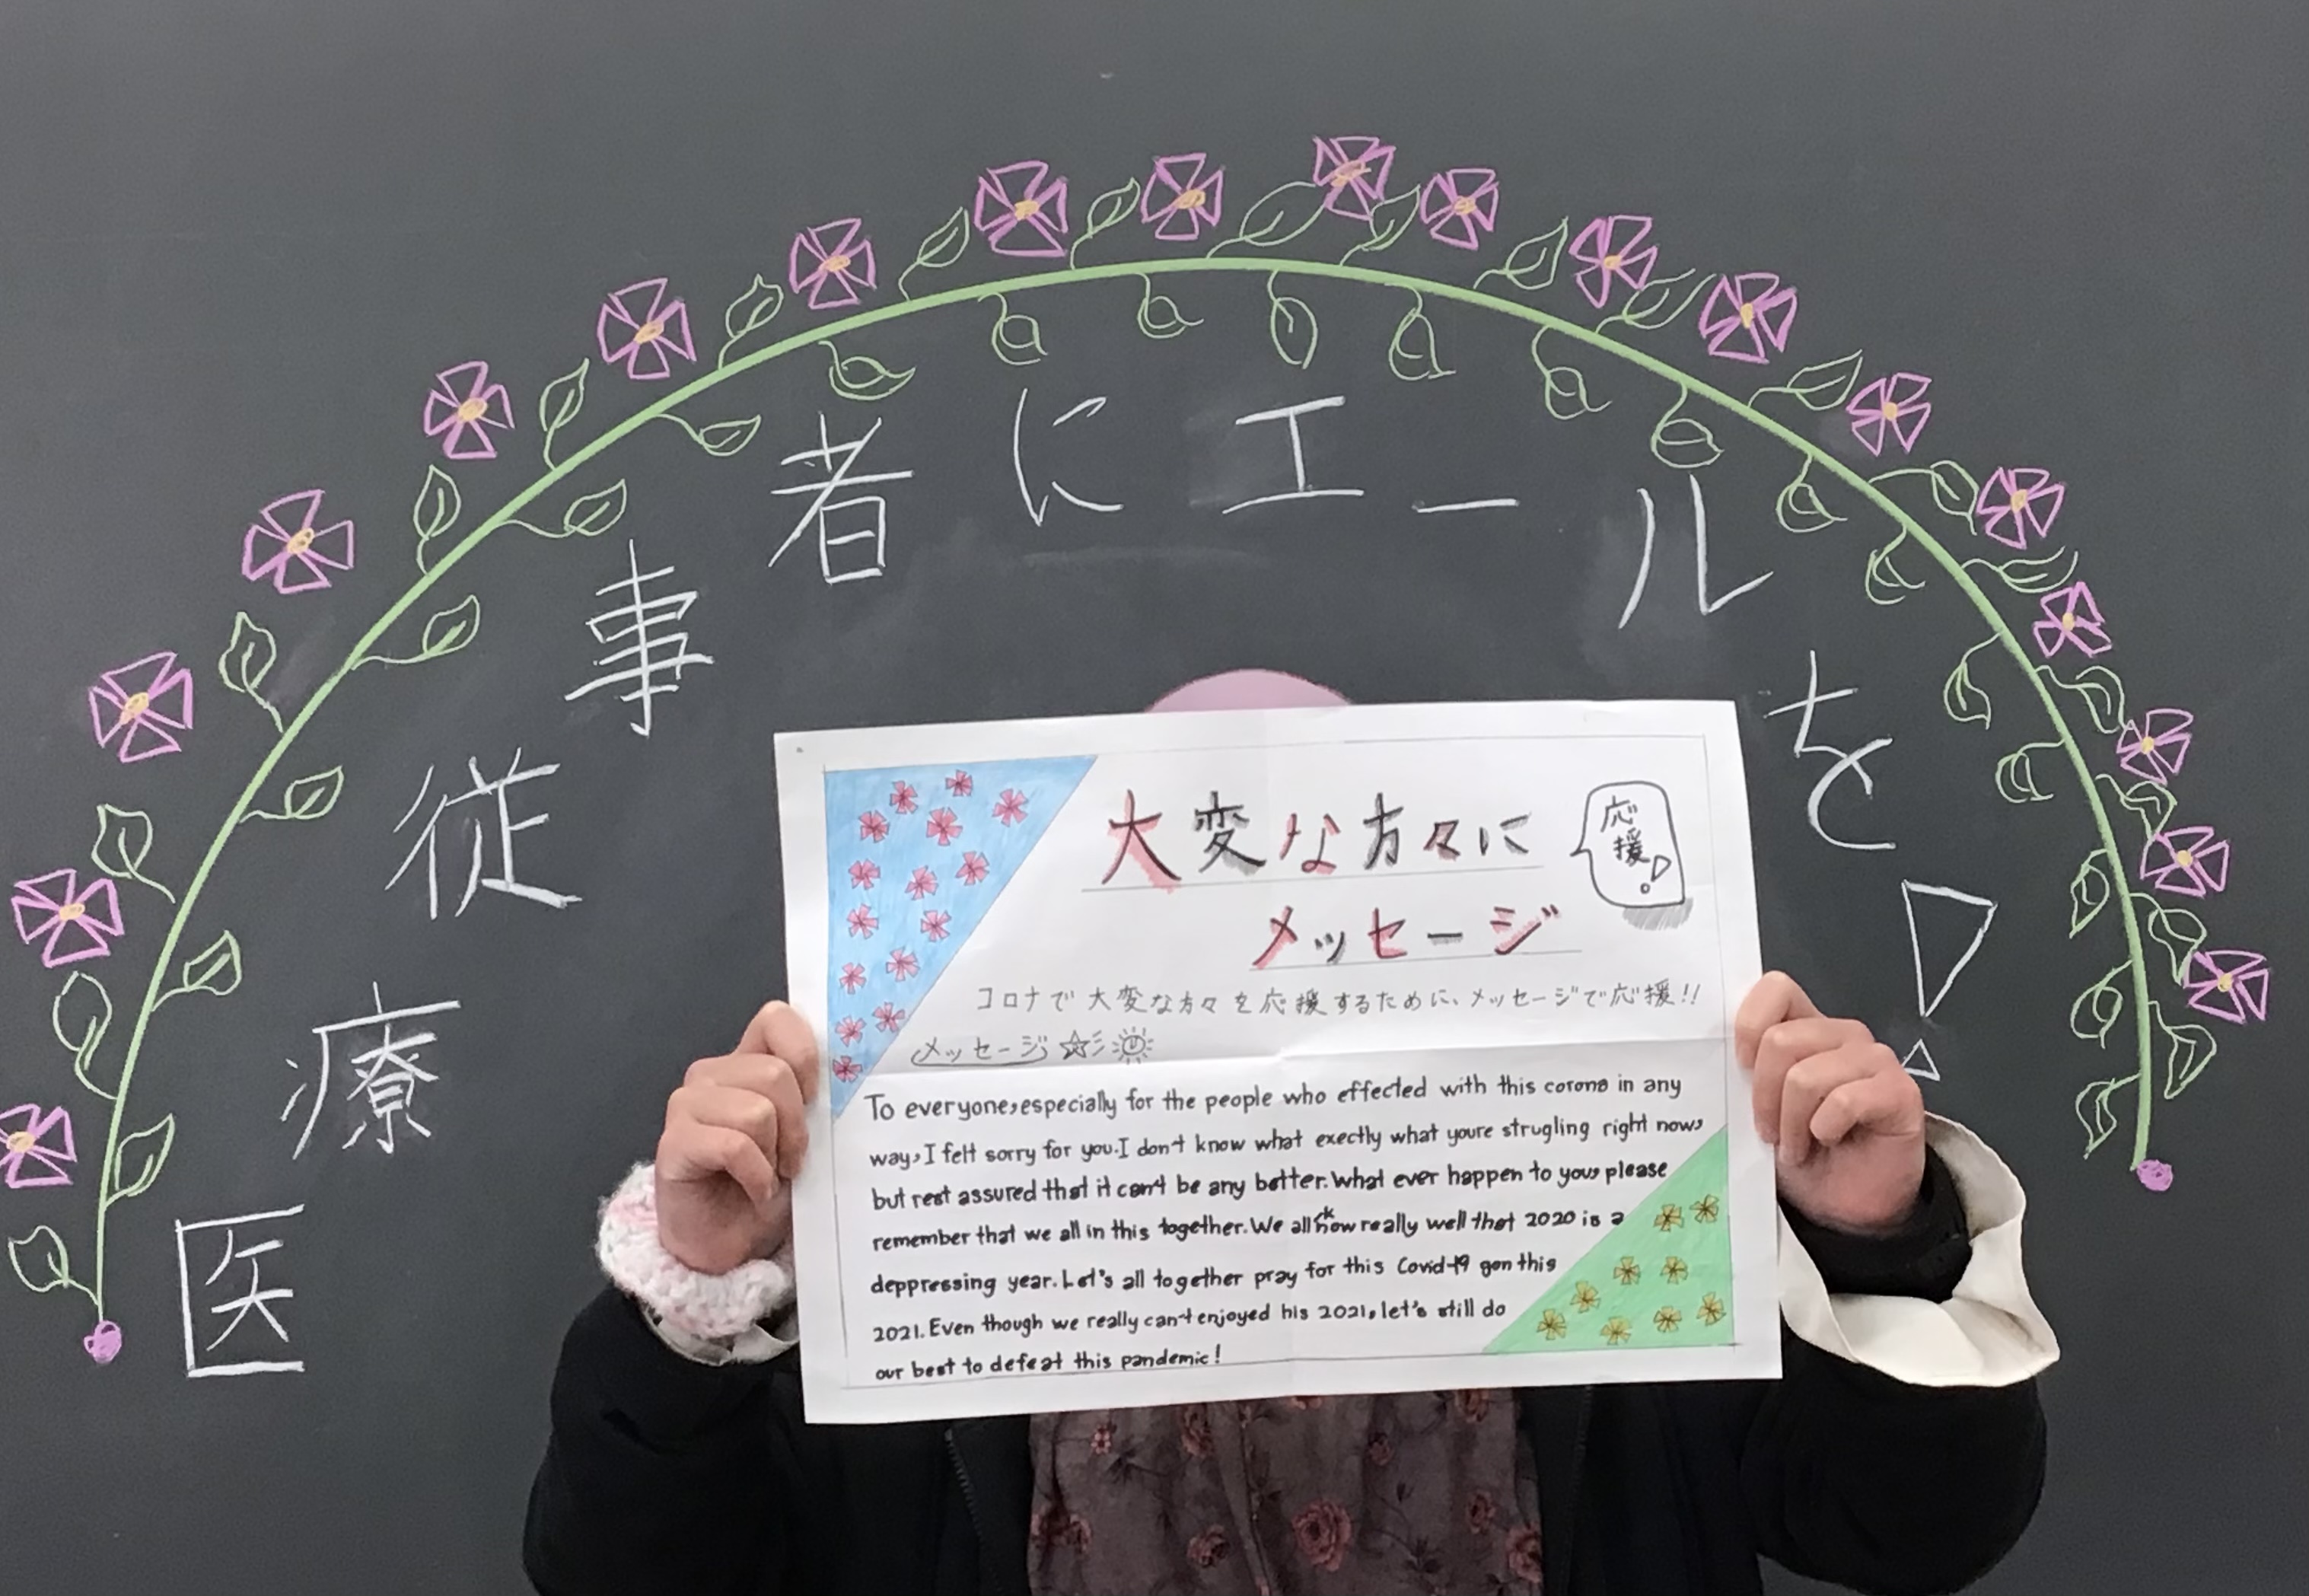 医療従事者にエールを!
大変な方々に
メッセージ
応援!
コロナで大変な方々を応援するために、メッセージで応援!!
メッセージ
To everyone,especially for the people who effected with this corona in any
way,I felt sorry for you.I don't know what exectly what youre strugling right now,
but rest assured that it can't be any better.What ever happen to you, please
remember that we all in this together.We all know really well that 2020 is a
deppressing year.Let's all together pray for this Covid-19 gon this
2021.Even though we really can't enjoyed his 2021,let's still do
our best to defeat this pandemic!